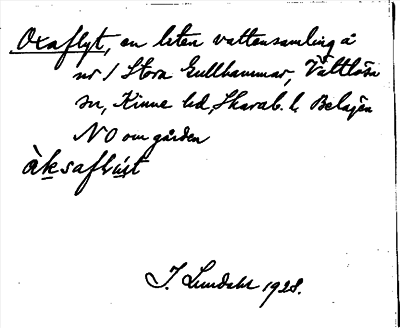 Oxaflyt, en liten vattensamling å
nr 1 Stora Gullhammar, Vättlösa
sn, Kinne hd, Skarab. l. Belägen
NO om gården
J. Lundahl 1928.